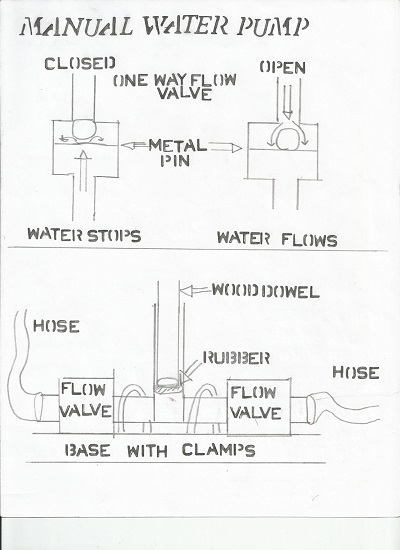 MANUAL WATER PUMP
CLOSED
OPEN
ONE WAY FLOW
VALVE
METAL
PIN
WATER STOPS
WATER FLOWS
WOOD DOWEL
HOSE
RUBBER
HOSE
FLOW
VALVE
FLOW
VALVE
BASE WITH CLAMPS